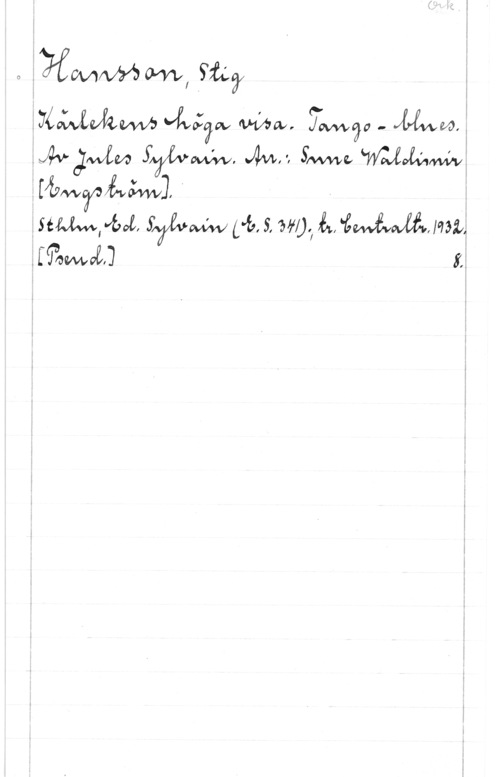 Ork.
Hansson, Stig
Kärlekens höga visa. Tango-blues.
Av Jules Sylvain. Arr.: Sune Waldimir
[Engström].
Sthlm, Ed. Sylvain (E. S. 341); tr. Centraltr. 1932.
[Pseud.] 8.